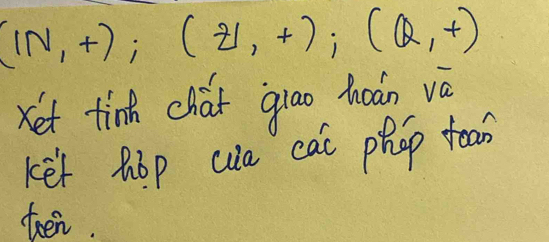 (ℕ, +); (ℤ, +); (ℚ, +)
xét tính chất giao hoán và
kết hợp của các phép toán
trên.